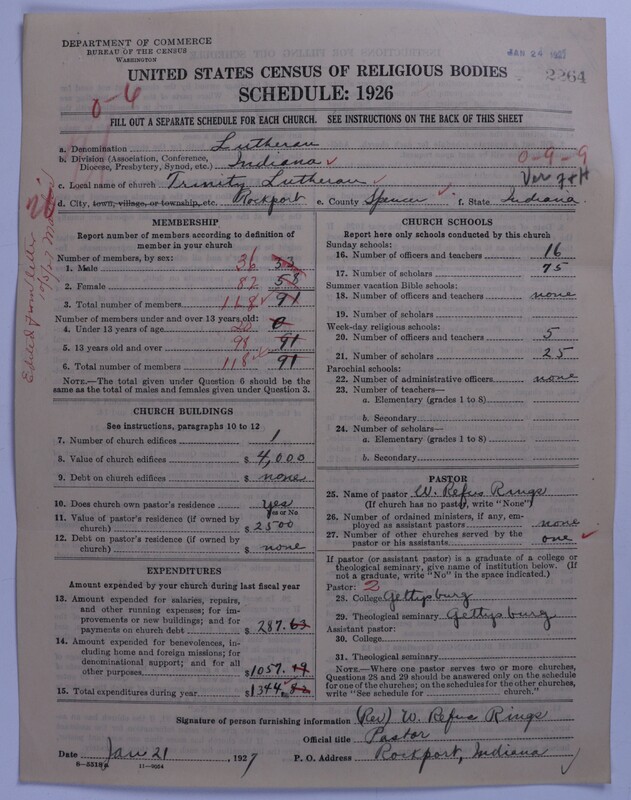 DEPARTMENT OF COMMERCE
BUREAU OF THE CENSUS
WASHINGTON
JAN 24 1927
2264
UNITED STATES CENSUS OF RELIGIOUS BODIES
SCHEDULE: 1926
0-6
FILL OUT A SEPARATE SCHEDULE FOR EACH CHURCH. SEE INSTRUCTIONS ON THE BACK OF THIS SHEET
a. Denomination Lutheran
b. Division (Association, Conference, Diocese, Presbytery, Synod, etc.) Indiana ✓
0-9-9
c. Local name of church Trinity Lutheran ✓
Ver
d. City, town, village, or township, etc. Rockport e. County Spencer ✓ f. State Indiana.
Edited from letter
MEMBERSHIP
Report number of members according to definition of
member in your church
Number of members, by sex:
1. Male 36 33
2. Female 82 58
3. Total number of members 118 ✓ 91
Number of members under and over 13 years old:
4. Under 13 years of age 20 0
5. 13 years old and over 98 91
6. Total number of members 118 ✓ 91
NOTE.—The total given under Question 6 should be
the same as the total of males and females given under Question 3.
CHURCH BUILDINGS
See instructions, paragraphs 10 to 12
7. Number of church edifices 1
8. Value of church edifices $ 4,000
9. Debt on church edifices $ none
10. Does church own pastor's residence yes
Yes or No
11. Value of pastor's residence (if owned by
church) $ 2500
12. Debt on pastor's residence (if owned by
church) $ none
EXPENDITURES
Amount expended by your church during last fiscal year
13. Amount expended for salaries, repairs,
and other running expenses; for im-
provements or new buildings; and for
payments on church debt $ 287.63
14. Amount expended for benevolences, in-
cluding home and foreign missions; for
denominational support; and for all
other purposes $ 1057.19
15. Total expenditures during year $ 1344.82
CHURCH SCHOOLS
Report here only schools conducted by this church
Sunday schools:
16. Number of officers and teachers 16
17. Number of scholars 75
Summer vacation Bible schools:
18. Number of officers and teachers none
19. Number of scholars
Week-day religious schools:
20. Number of officers and teachers 5
21. Number of scholars 25
Parochial schools:
22. Number of administrative officers none
23. Number of teachers—
a. Elementary (grades 1 to 8)
b. Secondary
24. Number of scholars—
a. Elementary (grades 1 to 8)
b. Secondary
PASTOR
25. Name of pastor W. Refus Rings
(If church has no pastor, write "None")
26. Number of ordained ministers, if any, em-
ployed as assistant pastors none
27. Number of other churches served by the
pastor or his assistants one ✓
If pastor (or assistant pastor) is a graduate of a college or
theological seminary, give name of institution below. (If
not a graduate, write "No" in the space indicated.)
Pastor: 2
28. College Gettysburg
29. Theological seminary Gettysburg
Assistant pastor:
30. College
31. Theological seminary
NOTE.—Where one pastor serves two or more churches,
Questions 28 and 29 should be answered only on the schedule
for one of the churches; on the schedules for the other churches,
write "See schedule for church."
Signature of person furnishing information (Rev) W. Refus Rings
Official title Pastor
Date Jan 21, 1927 P. O. Address Rockport, Indiana
8-5518a 11-9264